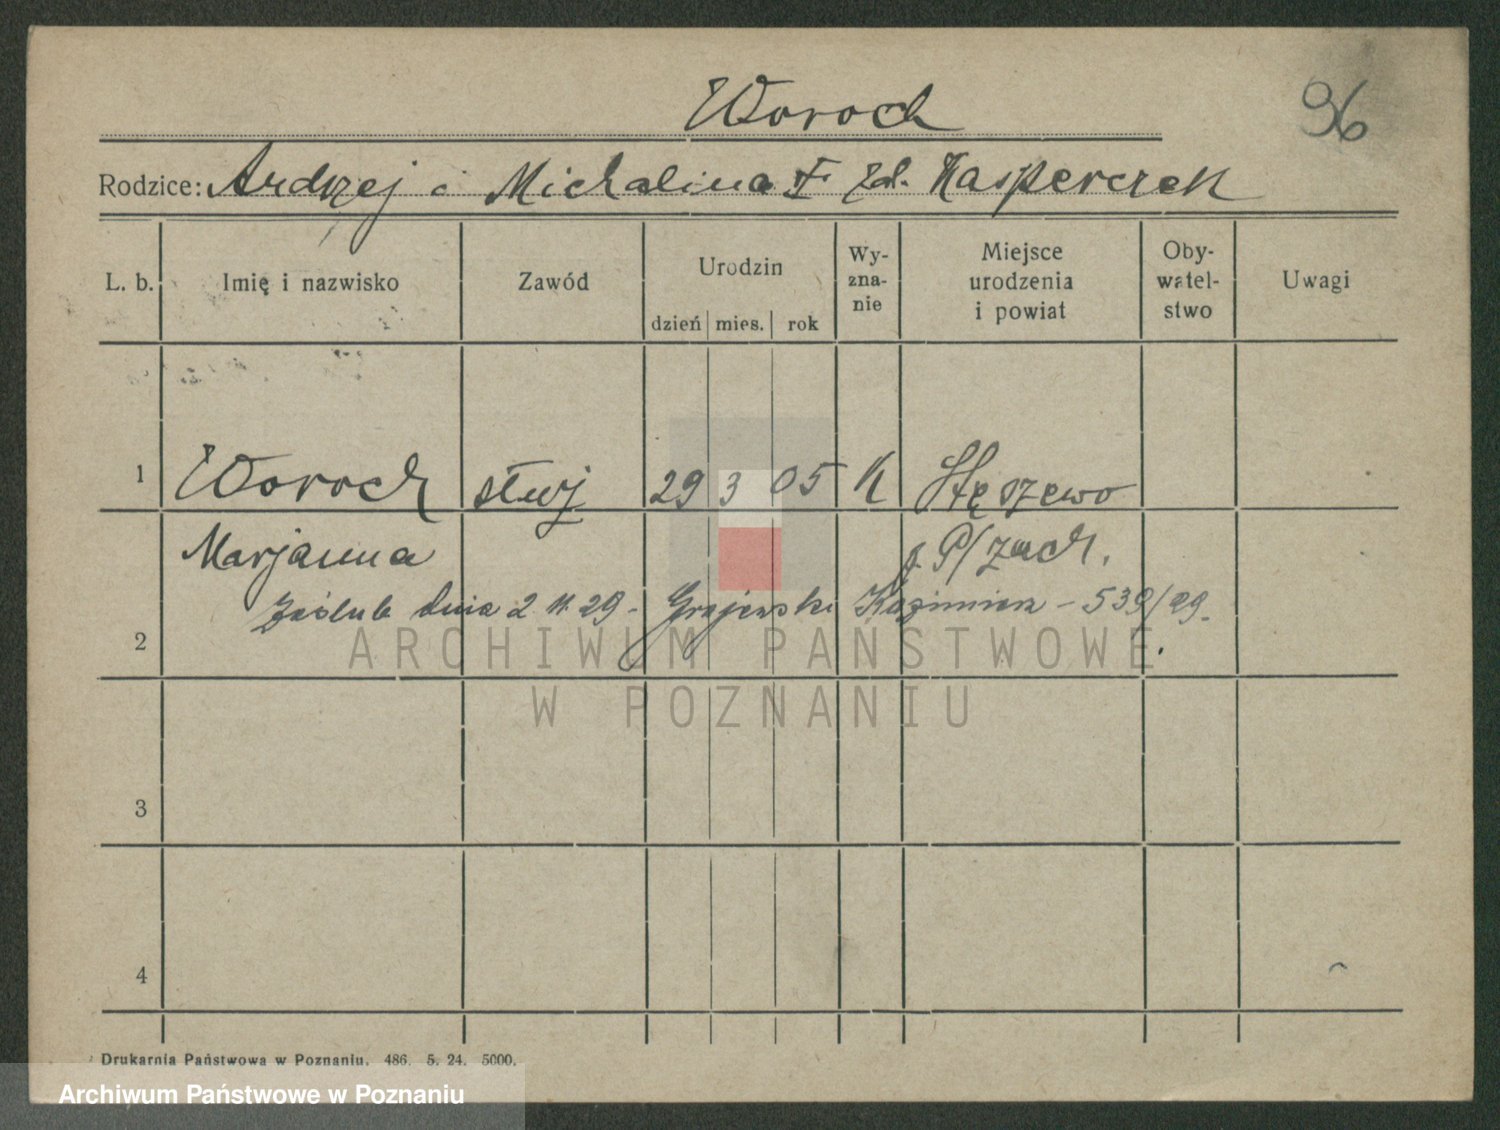 Woroch
96
Rodzice: Andrzej i Michalina z d. Kasperczek
L. b. Imię i nazwisko Zawód Urodzin dzień mies. rok Wy-zna-nie Miejsce urodzenia i powiat Oby-watel-stwo Uwagi
1 Woroch służ 29 3 05 K Stęszewo
Marjanna p. P/zach.
Zaślub dnia 2 11 29 - Grajewski Kazimierz - 539/29.
2
ARCHIWUM PAŃSTWOWE
W POZNANIU
3
4
Drukarnia Państwowa w Poznaniu. 486. 5. 24. 5000.
Archiwum Państwowe w Poznaniu